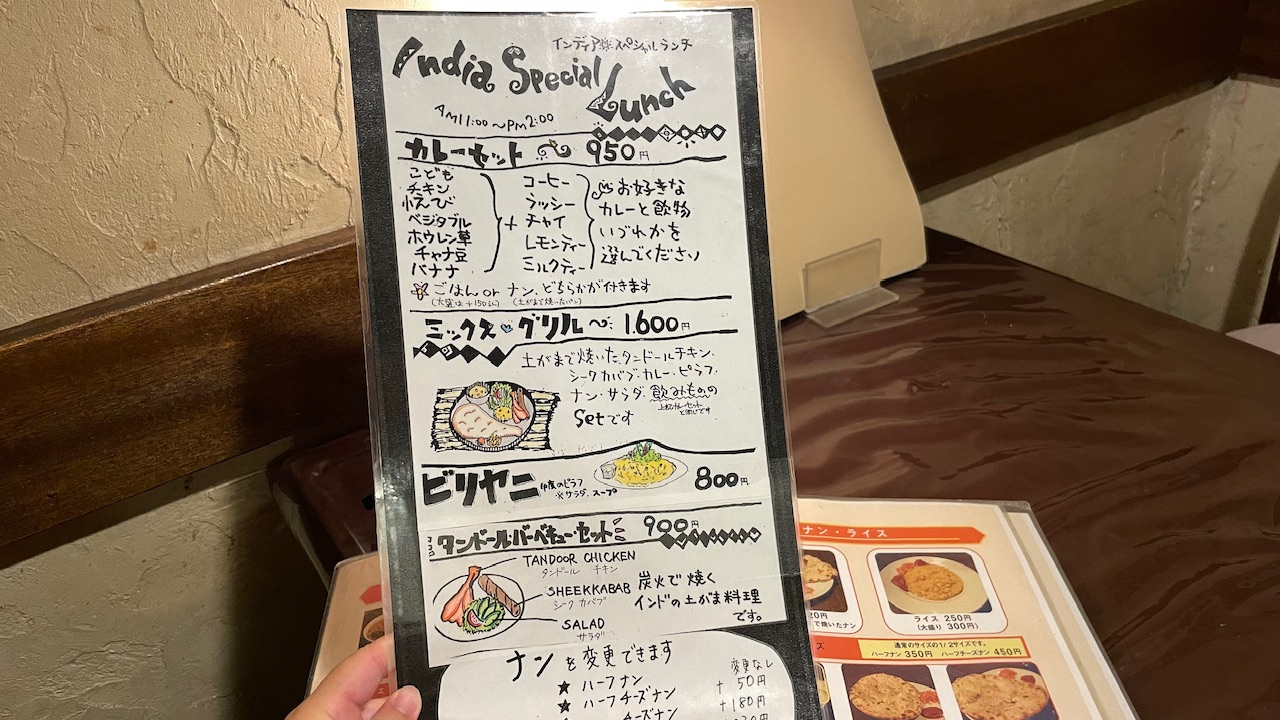 インディア㐂スペシャルランチ
India Special Lunch
AM11:00〜PM2:00
カレーセット 950円
こども
チキン
小えび
ベジタブル
ホウレン草
チャナ豆
バナナ
+
コーヒー
ラッシー
チャイ
レモンティー
ミルクティー
お好きな
カレーと飲物
いづれかを
選んでください
ごはん or ナン、どちらかが付きます
(大盛は+150えん) (土がまで焼いたパン)
ミックス・グリル〜 1.600円
土がまで焼いたタンドールチキン、
シークカバブ・カレー・ピラフ、
ナン・サラダ 飲みものの
上記カレーセットと同じです
Setです
ビリヤニ 印度のピラフ ※サラダ、スープ 800円
タンドールバーベキューセット 900円
TANDOOR CHICKEN
タンドール チキン
SHEEKKABAB
シーク カバブ
SALAD
サラダ
炭火で焼く
インドの土がま料理
です。
ナンを変更できます
★ ハーフナン 変更なし
★ ハーフチーズナン +50円
チーズナン +180円
ナン・ライス
で焼いたナン
ライス 250円
(大盛り 300円)
通常のサイズの1/2サイズです。
ハーフナン 350円 ハーフチーズナン 450円